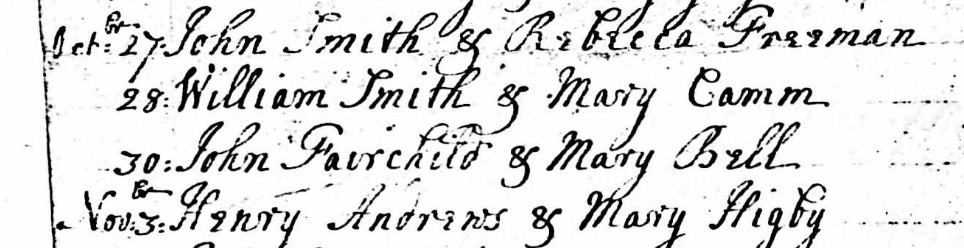 Oct:br 27: John Smith & Rebecca Freeman
28: William Smith & Mary Camm
30: John Fairchild & Mary Bell
Nov:br 3: Henry Andrews & Mary Higby